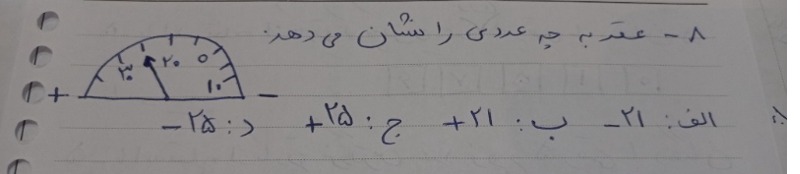 ۸ - عقربه چه عددی را نشان می دهد.
۳۰ ۲۰ ۵ ۱۰
+ -
الف: ۲۱ - ب: ۲۱ + ج: ۲۵ + د: ۲۵ -